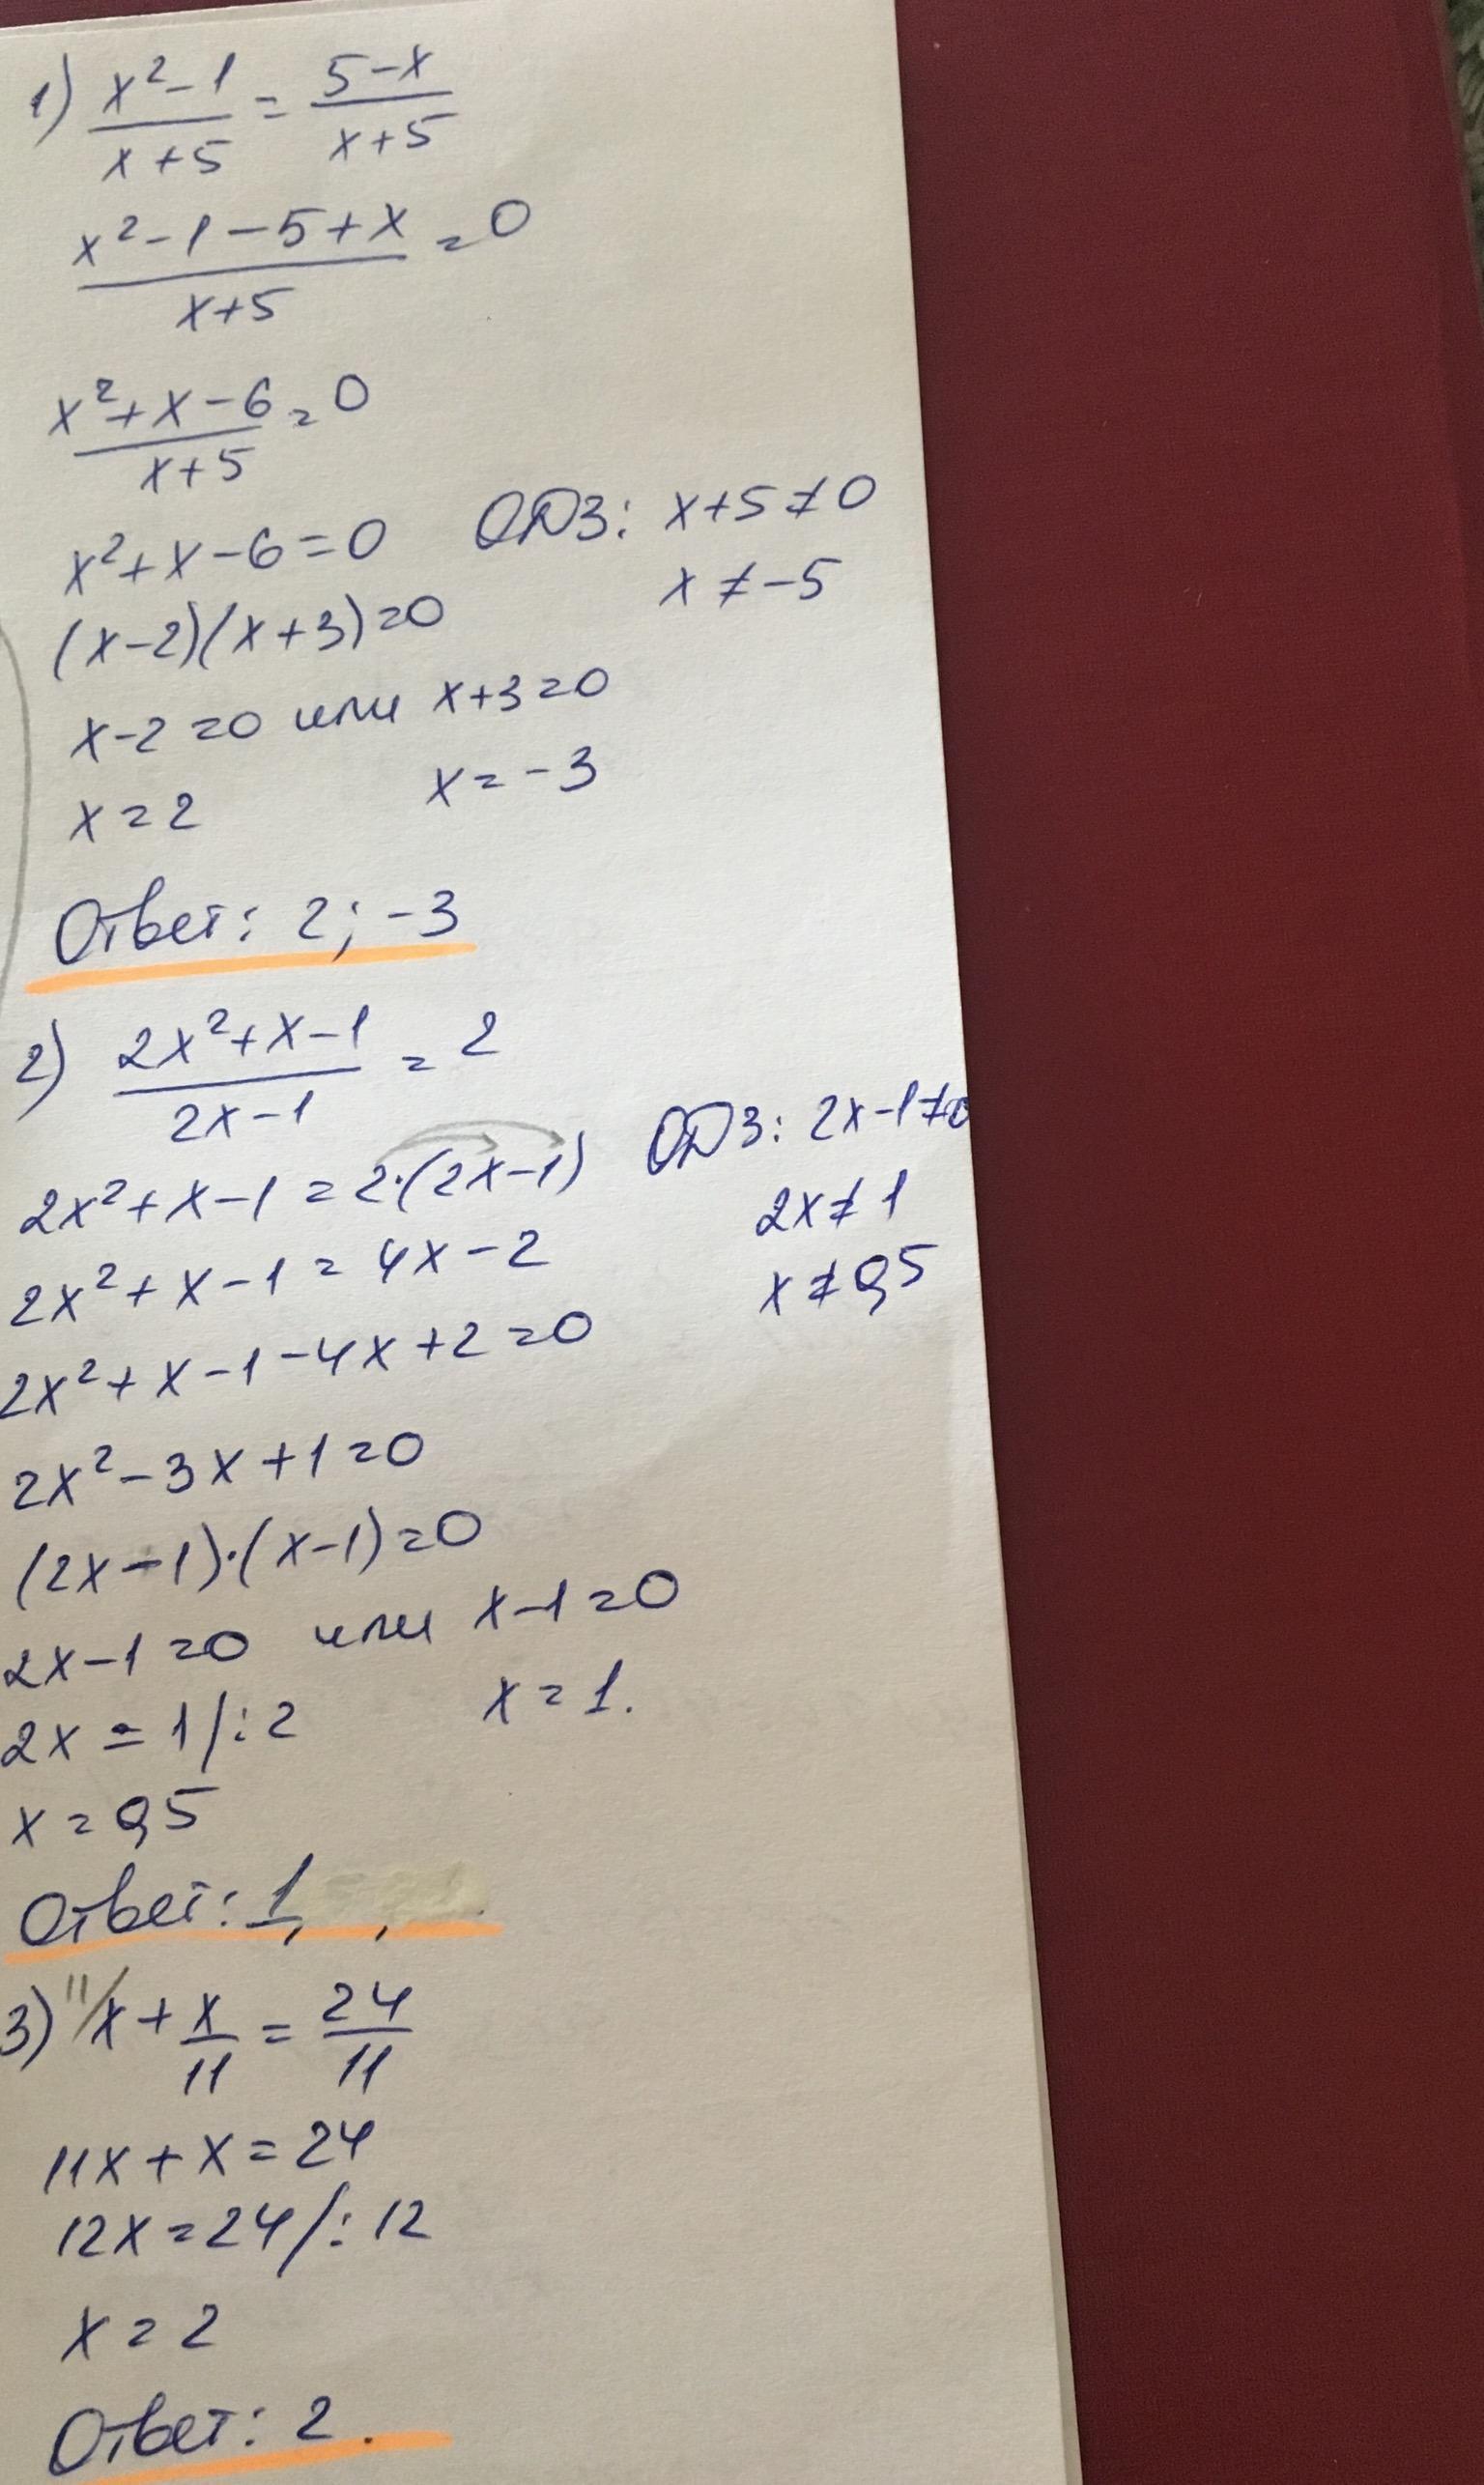 1) (x²-1)/(x+5) = (5-x)/(x+5)
(x²-1-5+x)/(x+5) = 0
(x²+x-6)/(x+5) = 0
x²+x-6=0 ОДЗ: x+5≠0
(x-2)(x+3)=0 x≠-5
x-2=0 или x+3=0
x=2 x=-3
Ответ: 2; -3
2) (2x²+x-1)/(2x-1) = 2
2x²+x-1=2·(2x-1) ОДЗ: 2x-1≠0
2x²+x-1=4x-2 2x≠1
2x²+x-1-4x+2=0 x≠0,5
2x²-3x+1=0
(2x-1)·(x-1)=0
2x-1=0 или x-1=0
2x=1/:2 x=1.
x=0,5
Ответ: 1,
3) 11/ x + x/11 = 24/11
11x+x=24
12x=24/:12
x=2
Ответ: 2.